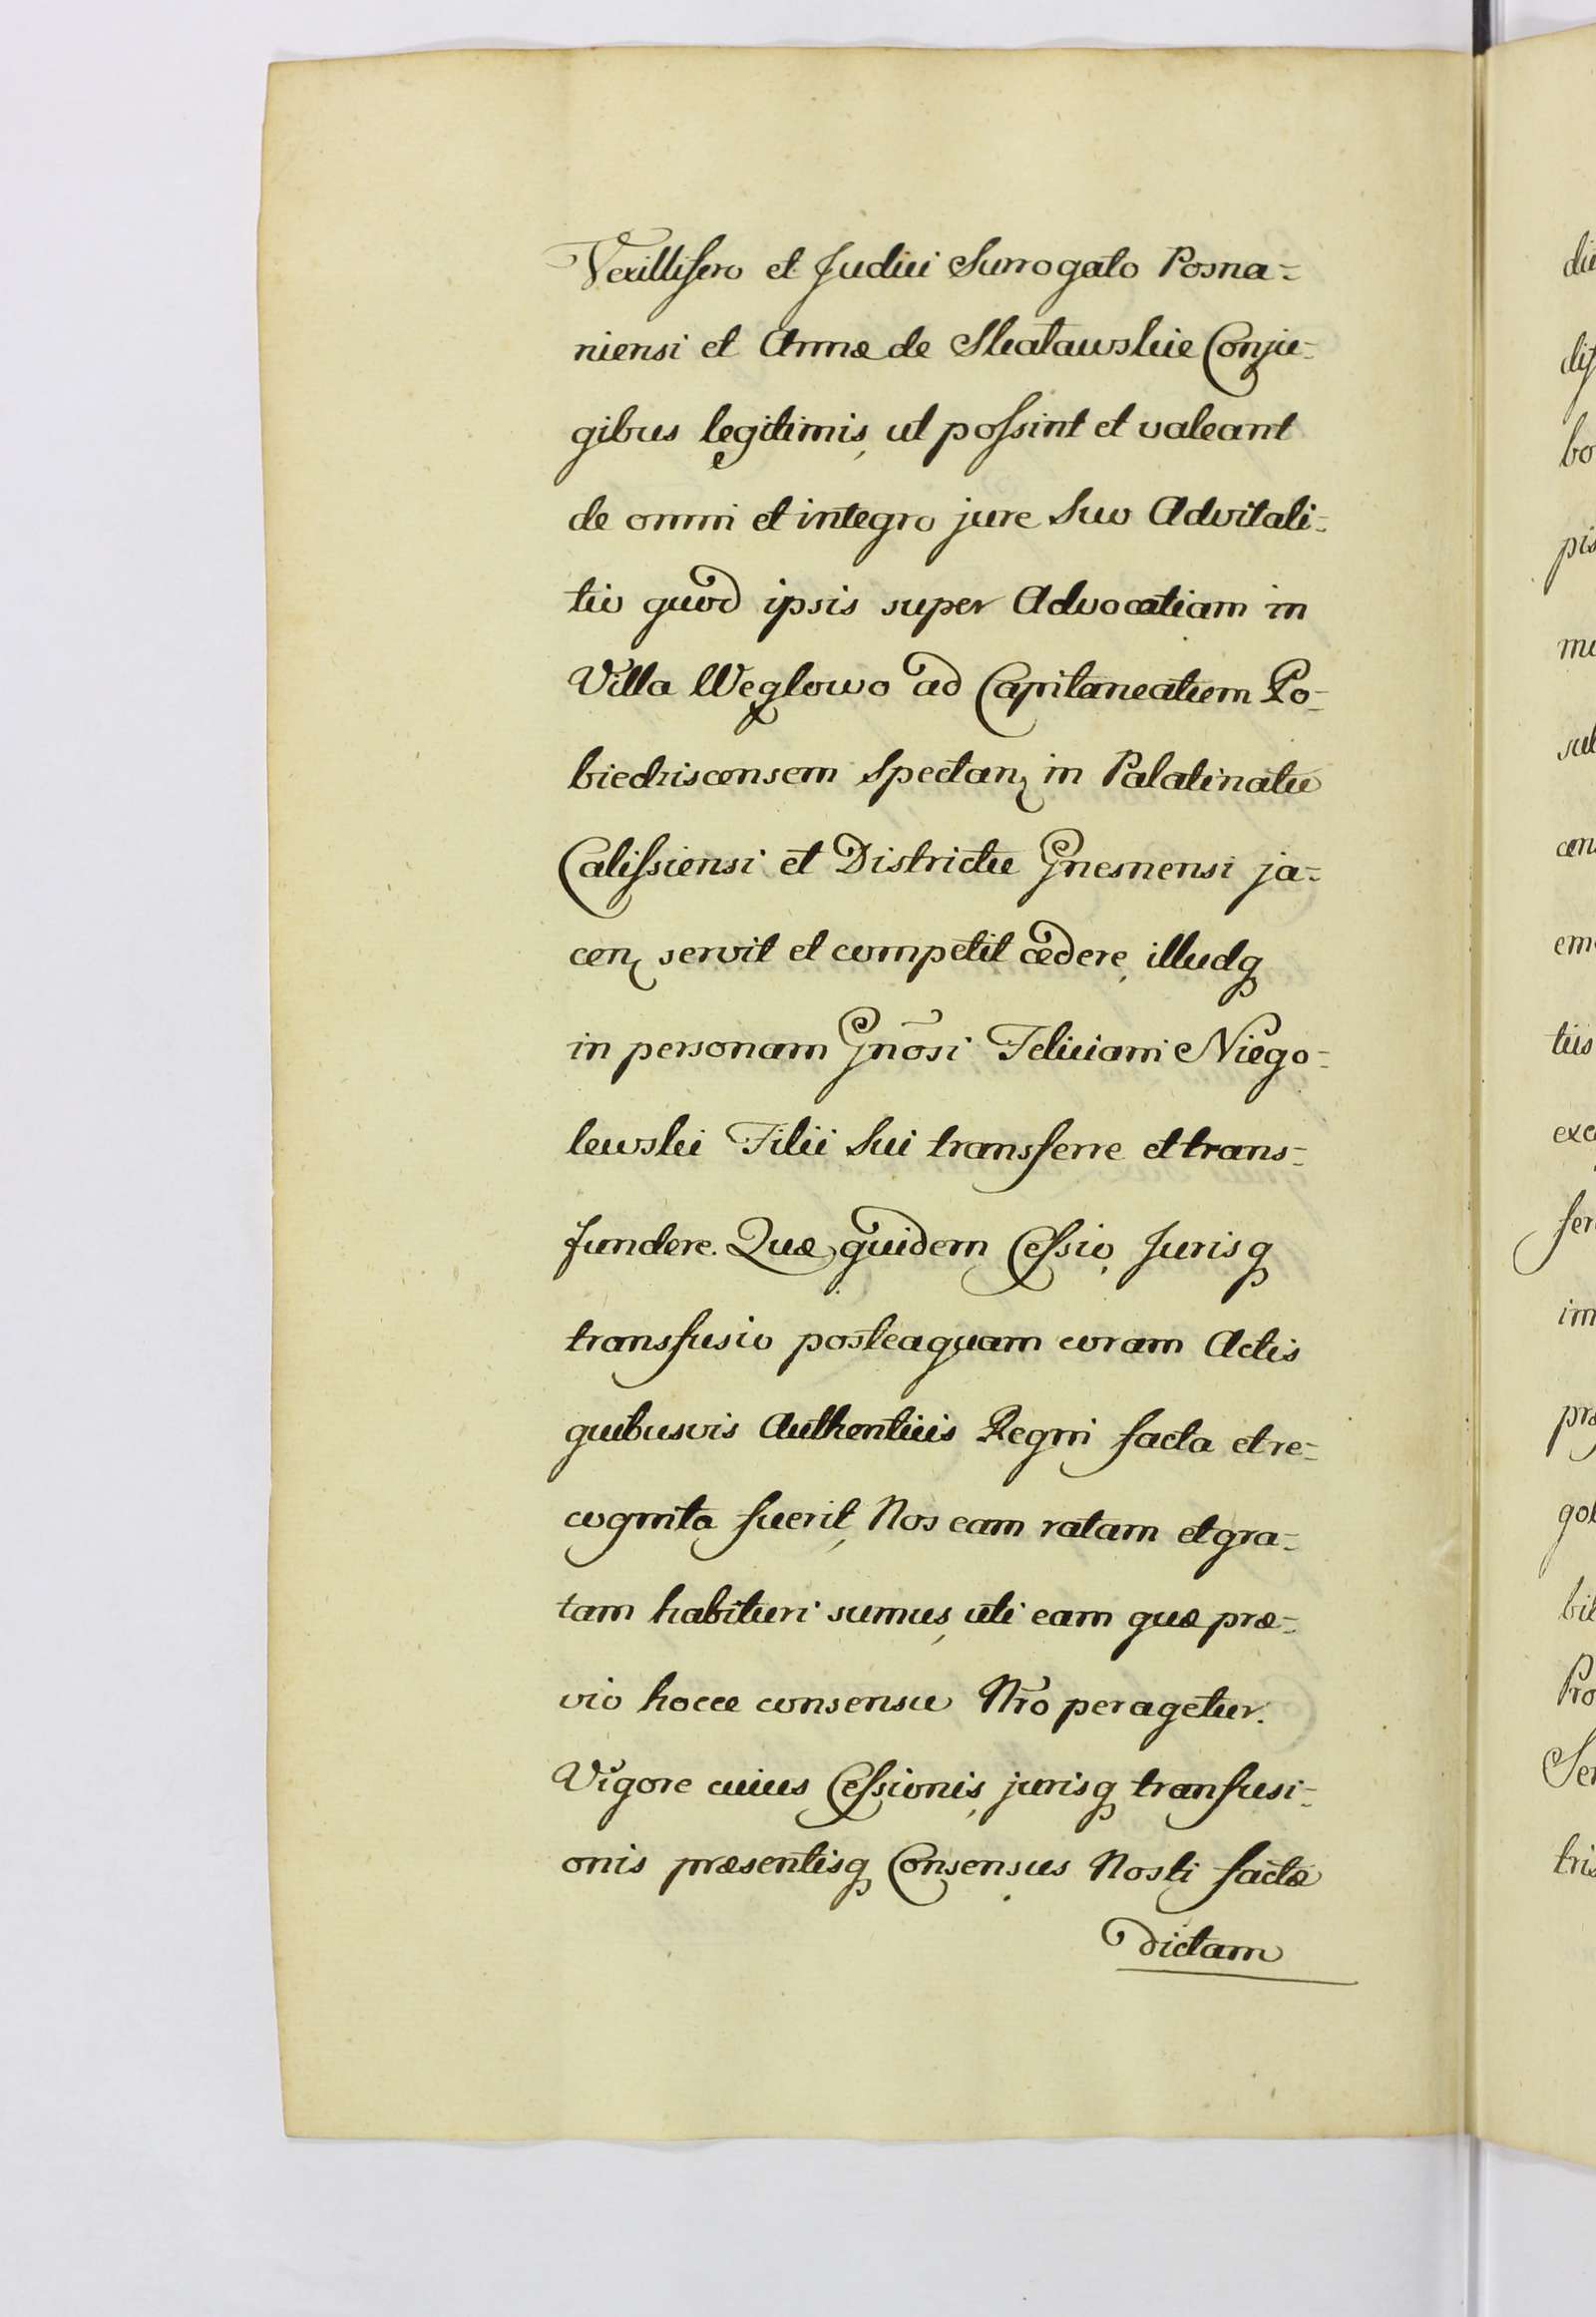 Vexillifero et Judici Surrogato Posna-
niensi et Annæ de Skaławskie Conju-
gibus legitimis, ut poſsint et valeant
de omni et integro jure Suo Advitali-
tio quod ipsis super Advocatiam in
Villa Węglowo ad Capitaneatum Po-
biedziscensem Spectanɀ in Palatinatu
Caliſsiensi et Districtu Gnesnensi ja-
cenɀ servit et competit cædere, illudq
in personam Gnõsi Feliciani Niego-
lewski Filii Sui transferre et trans-
fundere. Quæ quidem Ceſsio, Jurisq
transfusio posteaquam coram Actis
quibusvis Authenticis Regni facta et re-
cognita fuerit, Nos eam ratam et gra-
tam habituri sumus, uti eam quæ præ-
vio hocce consensu Nr̃o peragetur.
Vigore cuius Ceſsionis, jurisq transfusi-
onis præsentisq Consensus Nosti factæ
dictam